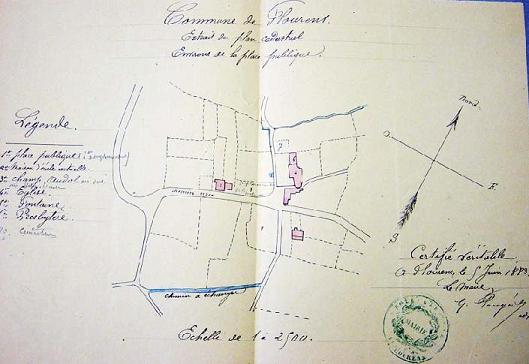 Commune de Flourens.
Extrait du plan cadastral
Environs de la place publique.
Légende.
1° place publique
2° Maison d'école actuelle
3° champ
4° Eglise
Fontaine
Presbytère.
cimetière
Nord
O
E
S
chemin à échanger
Certifié véritable
à Flourens, le 5 Juin 1883
Le Maire
MAIRIE
Echelle de 1 à 2500.